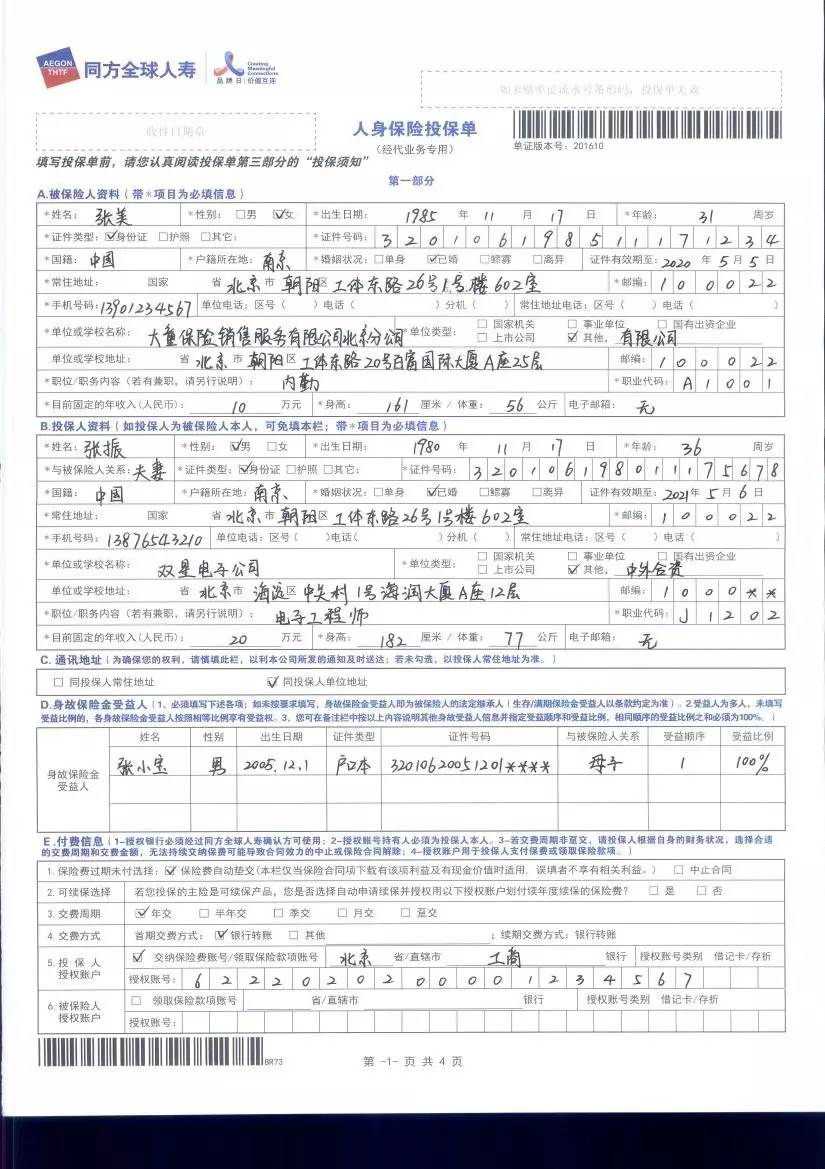 AEGON THTF 同方全球人寿 品牌日 价值互连 Creating Meaningful Connections
如未贴单证流水号条形码，投保单无效
收件日期章
人身保险投保单
（经代业务专用）
单证版本号：201610
填写投保单前，请您认真阅读投保单第三部分的“投保须知”
第一部分
A.被保险人资料（带*项目为必填信息）
*姓名：张美 *性别：□男 ☑女 *出生日期：1985 年 11 月 17 日 *年龄：31 周岁
*证件类型：☑身份证 □护照 □其它： *证件号码：320106198511171234
*国籍：中国 *户籍所在地：南京 *婚姻状况：□单身 ☑已婚 □鳏寡 □离异 证件有效期至：2020 年 5 月 5 日
*常住地址： 国家 省 北京 市 朝阳 区 工体东路26号1号楼602室 *邮编：100022
*手机号码：13901234567 单位电话：区号（ ）电话（ ）分机（ ） 常住地址电话：区号（ ）电话（ ）
*单位或学校名称：大童保险销售服务有限公司北京分公司 *单位类型：□ 国家机关 □ 事业单位 □ 国有出资企业
□ 上市公司 ☑ 其他，有限公司
单位或学校地址： 省 北京 市 朝阳 区 工体东路20号百富国际大厦A座25层 邮编：100022
*职位/职务内容（若有兼职，请另行说明）：内勤 *职业代码：A1001
*目前固定的年收入(人民币)：10 万元 *身高：161 厘米 / 体重：56 公斤 电子邮箱：无
B.投保人资料（如投保人为被保险人本人，可免填本栏；带*项目为必填信息）
*姓名：张振 *性别：☑男 □女 *出生日期：1980 年 11 月 17 日 *年龄：36 周岁
*与被保险人关系：夫妻 *证件类型：☑身份证 □护照 □其它： *证件号码：320106198011175678
*国籍：中国 *户籍所在地：南京 *婚姻状况：□单身 ☑已婚 □鳏寡 □离异 证件有效期至：2021 年 5 月 6 日
*常住地址： 国家 省 北京 市 朝阳 区 工体东路26号1号楼602室 *邮编：100022
*手机号码：13876543210 单位电话：区号（ ）电话（ ）分机（ ） 常住地址电话：区号（ ）电话（ ）
*单位或学校名称：双星电子公司 *单位类型：□ 国家机关 □ 事业单位 □ 国有出资企业
□ 上市公司 ☑ 其他，中外合资
单位或学校地址： 省 北京 市 海淀 区 中关村1号海润大厦A座12层 邮编：1000**
*职位/职务内容（若有兼职，请另行说明）：电子工程师 *职业代码：J1202
*目前固定的年收入(人民币)：20 万元 *身高：182 厘米 / 体重：77 公斤 电子邮箱：无
C. 通讯地址（为确保您的权利，请慎填此栏，以利本公司所发的通知及时送达；若未勾选，以投保人常住地址为准。）
□ 同投保人常住地址 ☑ 同投保人单位地址
D.身故保险金受益人（1、必须填写下述各项；如未按要求填写，身故保险金受益人即为被保险人的法定继承人（生存/满期保险金受益人以条款约定为准）。2.受益人为多人，未填写
受益比例的，各身故保险金受益人按照相等比例享有受益权。3、您可在备注栏中按以上内容说明其他身故受益人信息并指定受益顺序和受益比例，相同顺序的受益比例之和必须为100%。）
姓名 性别 出生日期 证件类型 证件号码 与被保险人关系 受益顺序 受益比例
身故保险金受益人 张小宝 男 2005.12.1 户口本 32010620051201**** 母子 1 100%
E .付费信息（1-授权银行必须经过同方全球人寿确认方可使用；2-授权账号持有人必须为投保人本人。3-若交费周期非趸交，请投保人根据自身的财务状况，选择合适
的交费周期和交费金额，无法持续交纳保费可能导致合同效力的中止或保险合同解除；4-授权账户用于投保人支付保费或领取保险款项。）
1. 保险费过期未付选择：☑ 保险费自动垫交(本栏仅当保险合同项下载有该项利益及有现金价值时适用，误填者不享有相关利益。） □ 中止合同
2. 可续保选择 若您投保的主险是可续保产品，您是否选择自动申请续保并授权用以下授权账户划付续年度续保的保险费？ □ 是 □ 否
3. 交费周期 ☑ 年交 □ 半年交 □ 季交 □ 月交 □ 趸交
4. 交费方式 首期交费方式：☑ 银行转账 □ 其他 ；续期交费方式：银行转账
5. 投保人授权账户 ☑ 交纳保险费账号/领取保险款项账号 北京 省/直辖市 工商 银行 授权账号类别 借记卡/存折
授权账号：6222020200001234567
6. 被保险人授权账户 □ 领取保险款项账号 省/直辖市 银行 授权账号类别 借记卡/存折
授权账号：
BR73
第 -1- 页 共 4 页